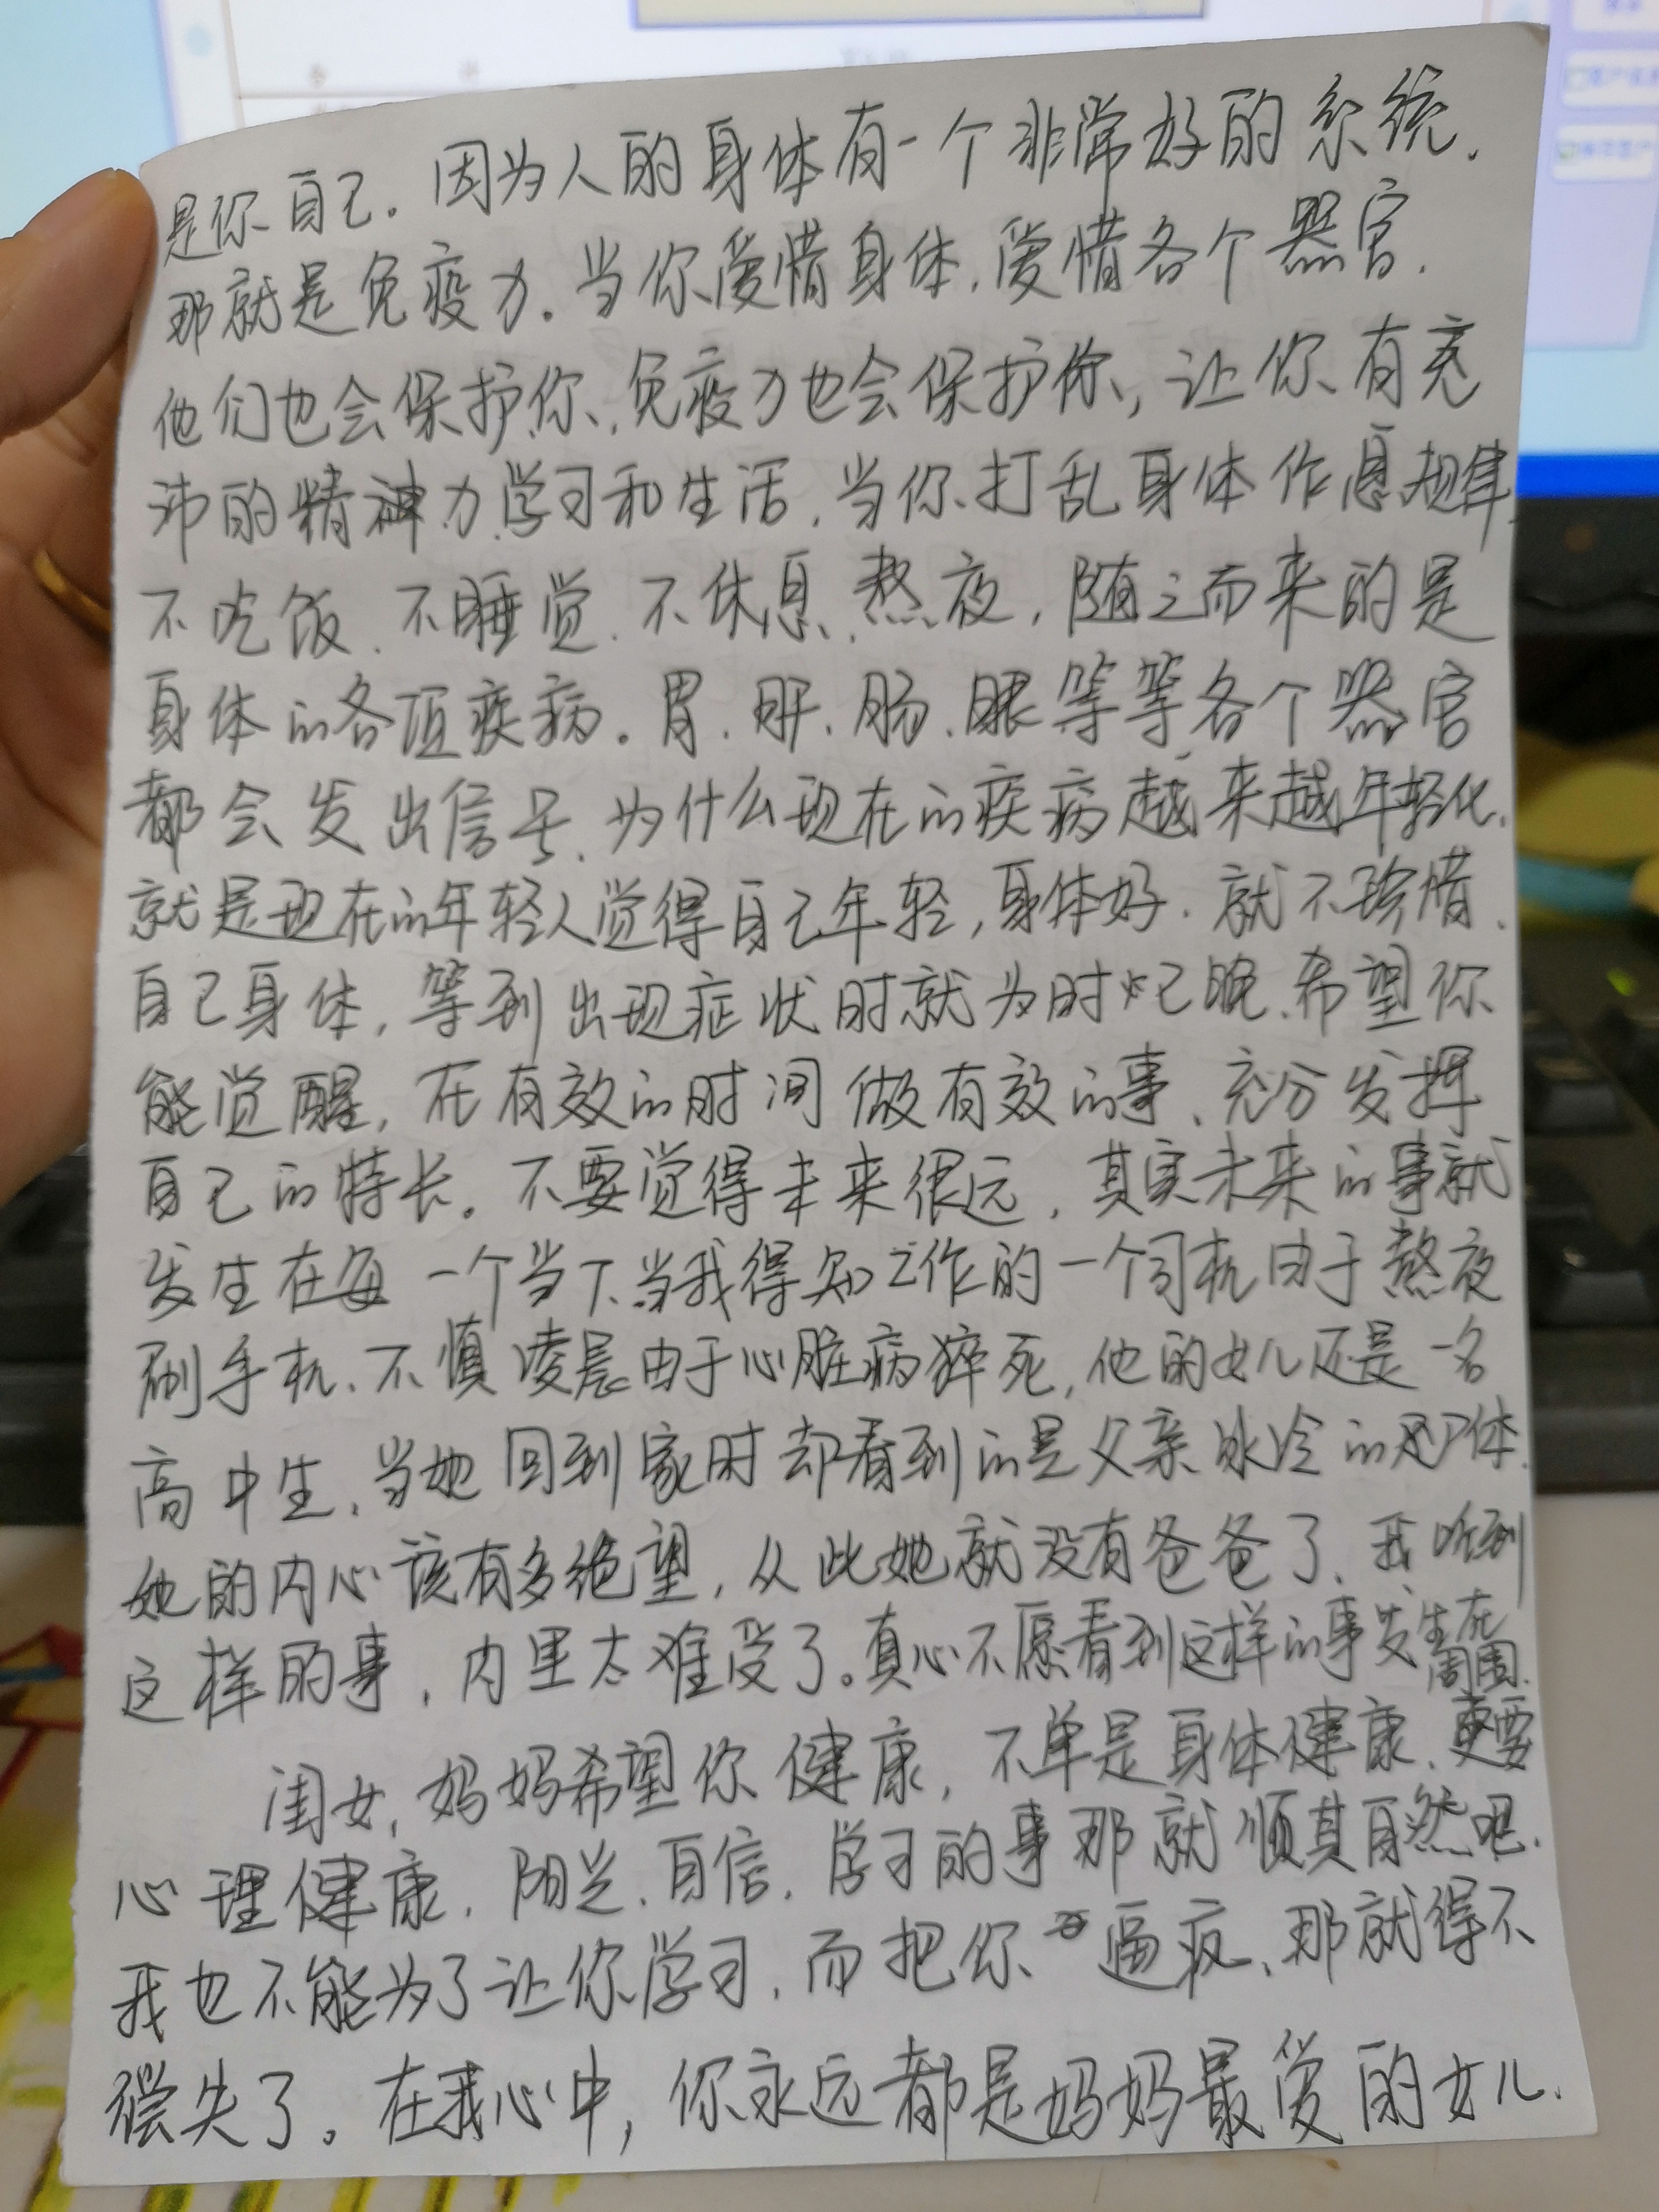 是你自己。因为人的身体有一个非常好的系统.
那就是免疫力。当你爱惜身体,爱惜各个器官.
他们也会保护你、免疫力也会保护你,让你有充
沛的精神力学习和生活,当你打乱身体作息规律
不吃饭、不睡觉、不休息、熬夜,随之而来的是
身体的各项疾病。胃、肝、肠、眼等等各个器官
都会发出信号、为什么现在的疾病越来越年轻化、
就是现在的年轻人觉得自己年轻,身体好.就不珍惜
自己身体,等到出现症状时就为时已晚、希望你
能觉醒,在有效的时间做有效的事、充分发挥
自己的特长。不要觉得未来很远,其实未来的事就
发生在每一个当下、当我得知工作的一个司机由于熬夜
刷手机、不慎凌晨由于心脏病猝死,他的女儿还是一名
高中生,当她回到家时却看到的是父亲冰冷的尸体.
她的内心该有多绝望,从此她就没有爸爸了、我听到
这样的事,内里太难受了。真心不愿看到这样的事发生在
周围.
闺女,妈妈希望你健康,不单是身体健康、更要
心理健康,阳光、自信,学习的事那就顺其自然吧.
我也不能为了让你学习,而把你逼疯、那就得不
偿失了。在我心中,你永远都是妈妈最爱的女儿.